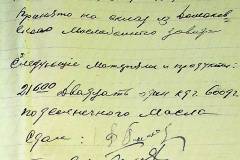 Принято по акту из
завода
Следующие материалы и продукты:
21600 Двадцать один кг. 600 гр
подсолнечного масла
Сдал: